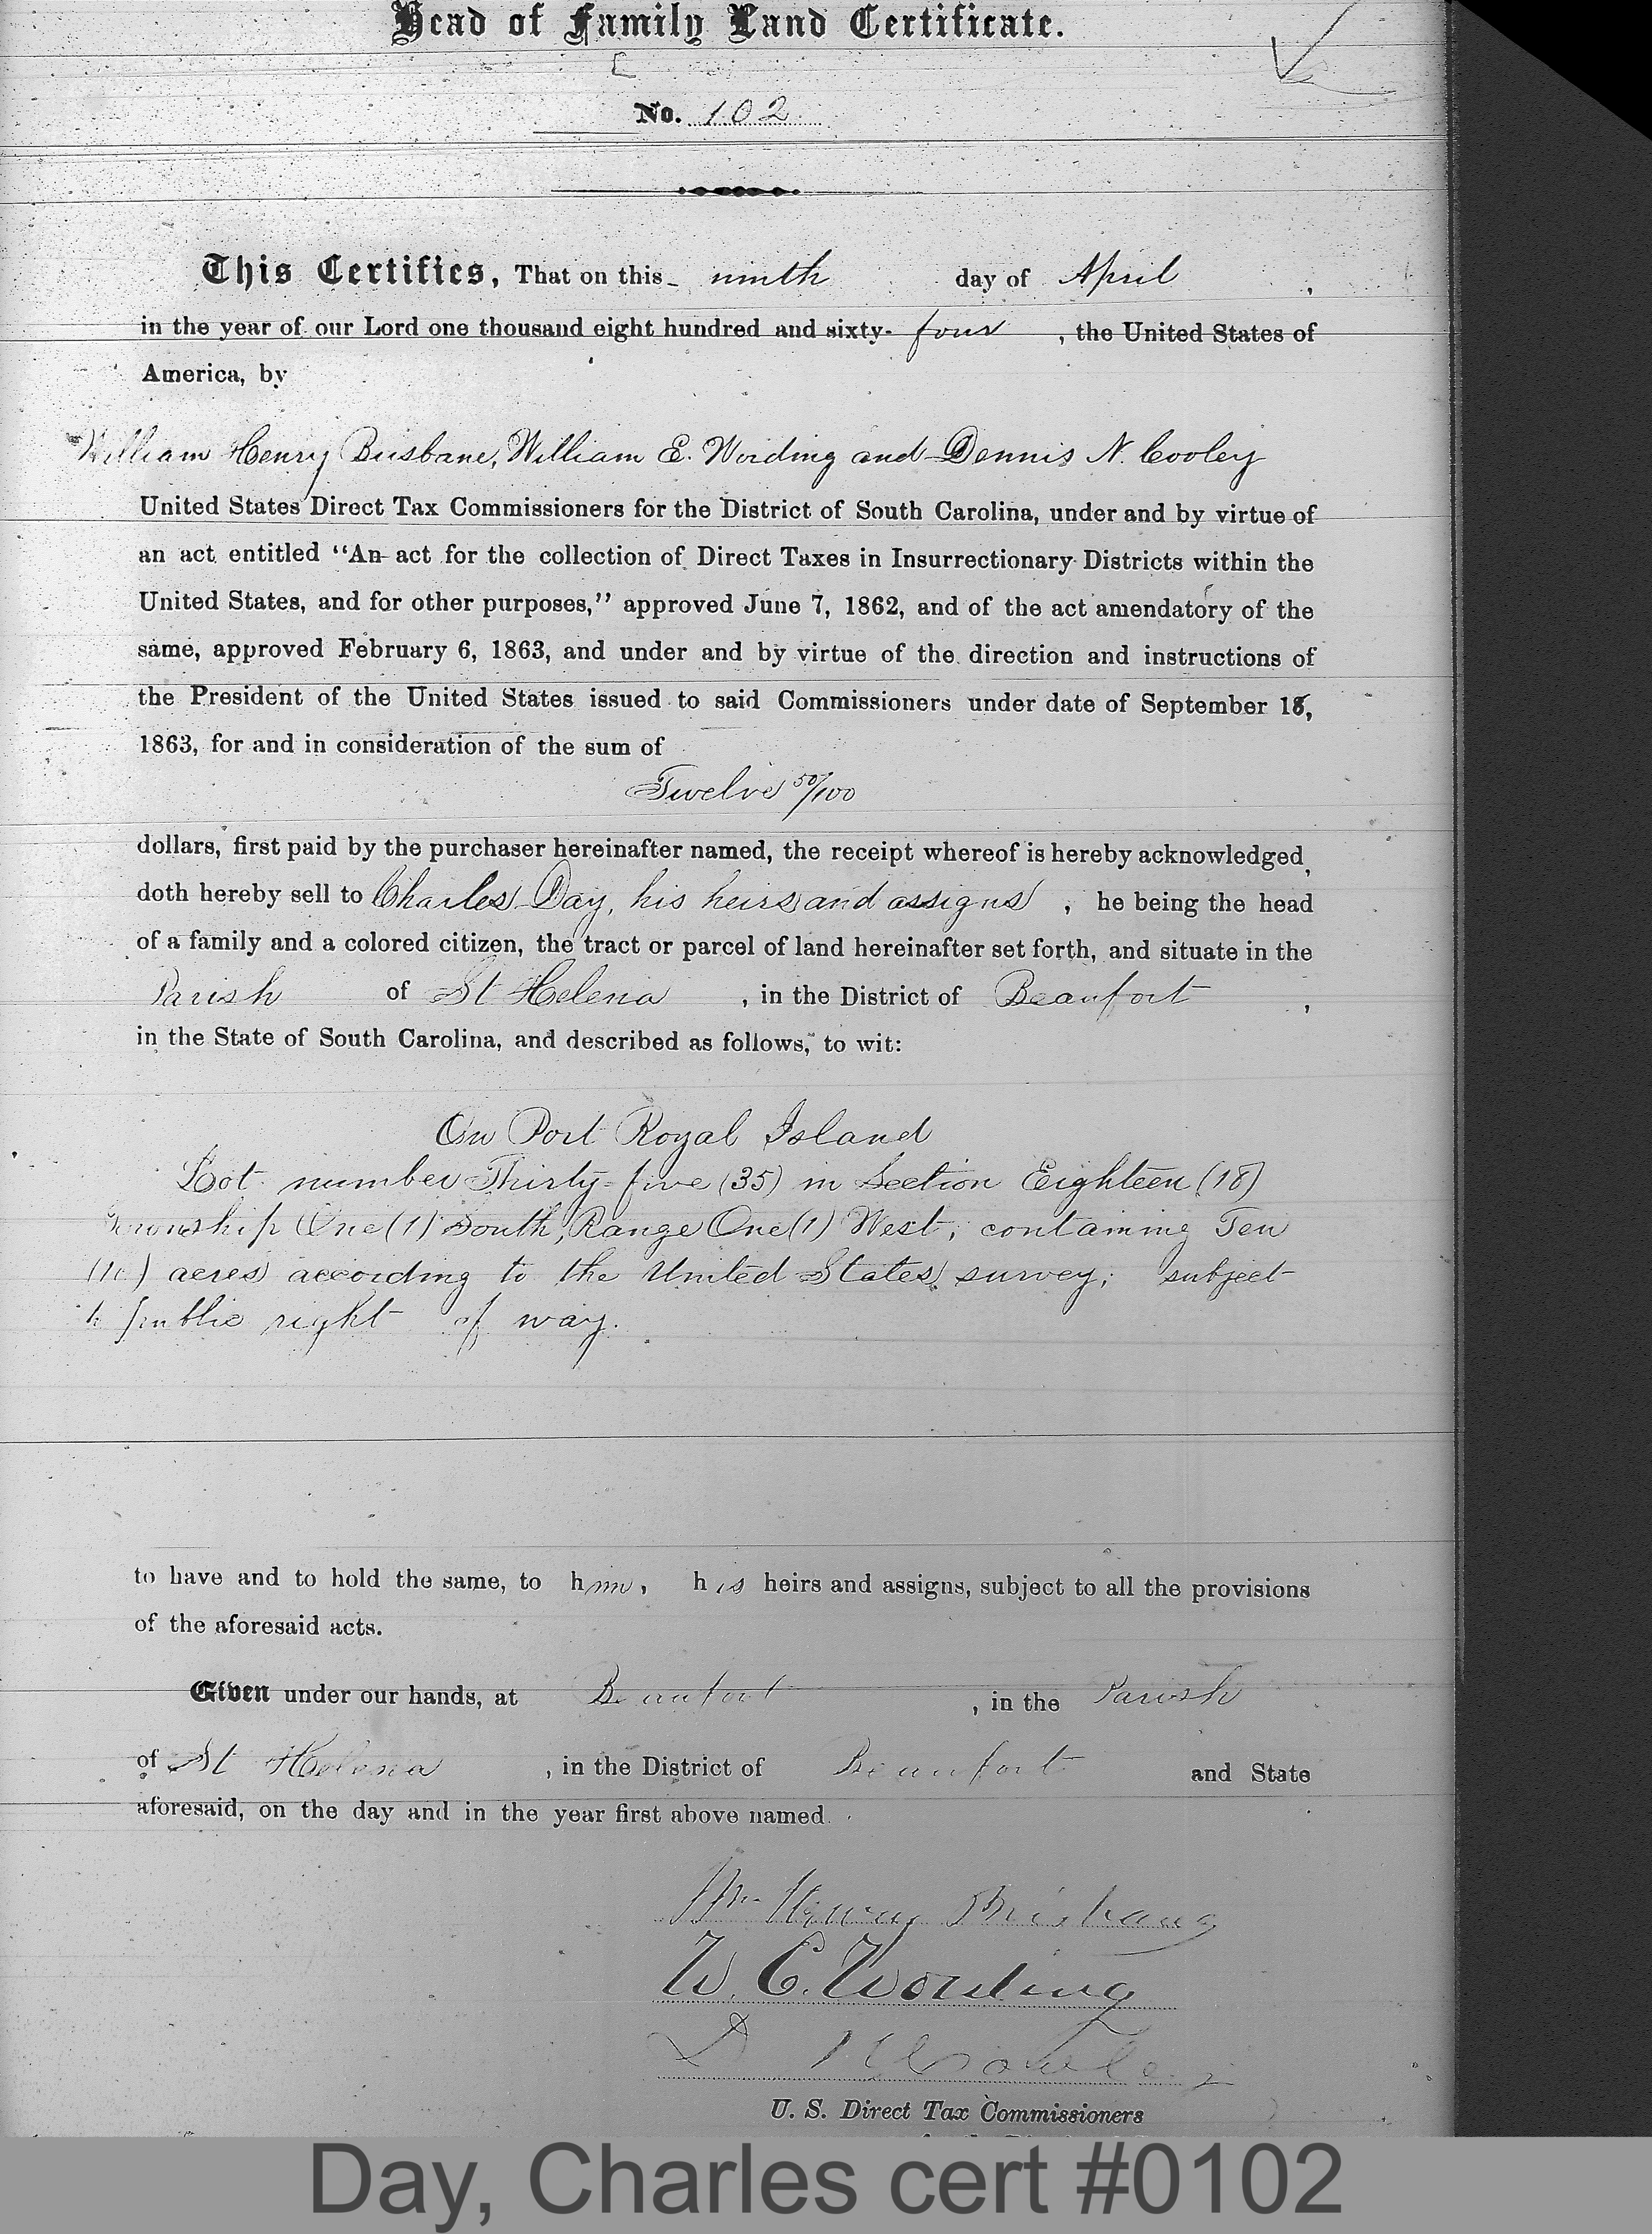 Head of Family Land Certificate.
No. 102
This Certifies, That on this ninth day of April,
in the year of our Lord one thousand eight hundred and sixty-four, the United States of
America, by
William Henry Brisbane, William E. Wording and Dennis N. Cooley
United States Direct Tax Commissioners for the District of South Carolina, under and by virtue of
an act entitled "An act for the collection of Direct Taxes in Insurrectionary Districts within the
United States, and for other purposes," approved June 7, 1862, and of the act amendatory of the
same, approved February 6, 1863, and under and by virtue of the direction and instructions of
the President of the United States issued to said Commissioners under date of September
1863, for and in consideration of the sum of
Twelve 50/100
dollars, first paid by the purchaser hereinafter named, the receipt whereof is hereby acknowledged,
doth hereby sell to Charles Day, his heirs and assigns, he being the head
of a family and a colored citizen, the tract or parcel of land hereinafter set forth, and situate in the
Parish of St Helena, in the District of Beaufort,
in the State of South Carolina, and described as follows, to wit:
On Port Royal Island
Lot number Thirty-five (35) in Section Eighteen (18)
Township One (1) South, Range One (1) West; containing Ten
(10) acres according to the United States survey; subject
to public right of way.
to have and to hold the same, to him, his heirs and assigns, subject to all the provisions
of the aforesaid acts.
Given under our hands, at Beaufort, in the Parish
of St Helena, in the District of Beaufort and State
aforesaid, on the day and in the year first above named.
Wm Henry Brisbane
W. E. Wording
D N Cooley
U. S. Direct Tax Commissioners
Day, Charles cert #0102